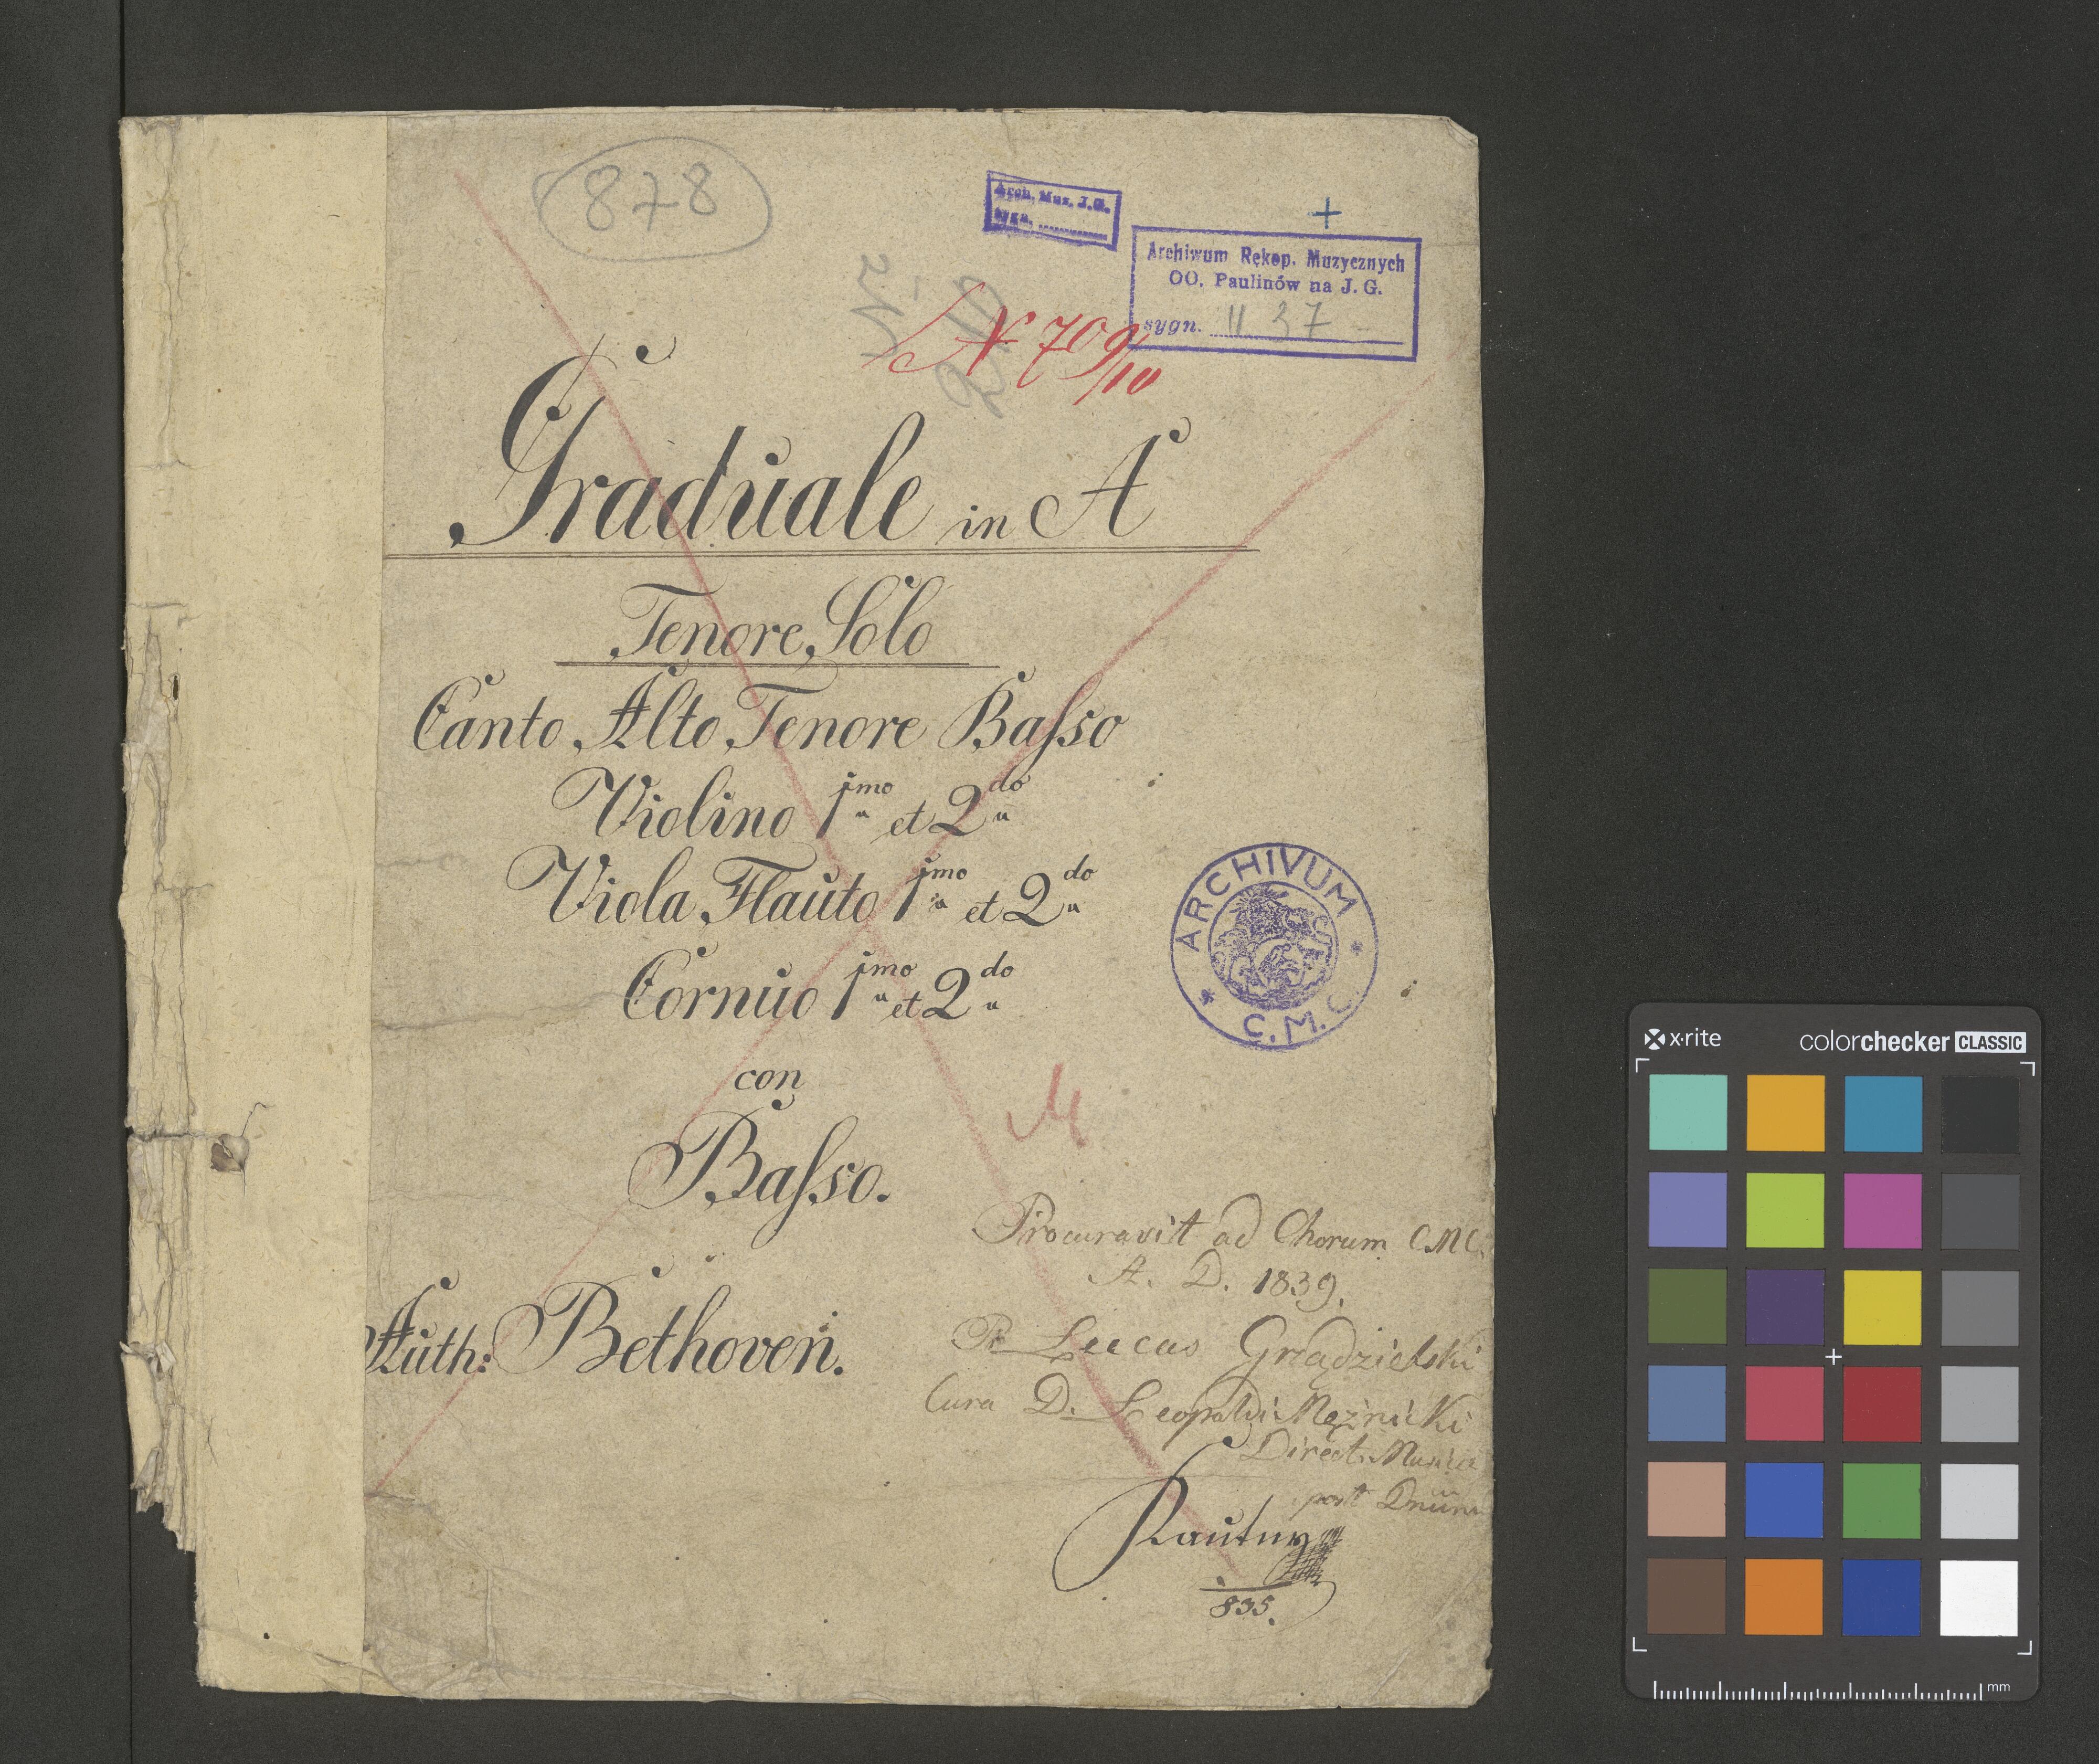 878
Arch. Mus. J.G.
sygn.
+
Archiwum Rękop. Muzycznych
OO. Paulinów na J. G.
sygn. II 37
N 709/10
Graduale in A
Tenore Solo
Canto Alto Tenore Baſso
Violino 1mo et 2do
Viola Flauto 1mo et 2do
Cornuo 1mo et 2do
ARCHIVUM
C.M.C.
con
Baſso.
Procuravit ad Chorum CMC.
A. D. 1839.
Auth: Bethoven.
P. Lucas Grządzielski
Cura D. Leopoldi Mężnicki
Direct. Musica
post Dnum
Rautny
835.
x·rite
colorchecker CLASSIC
mm